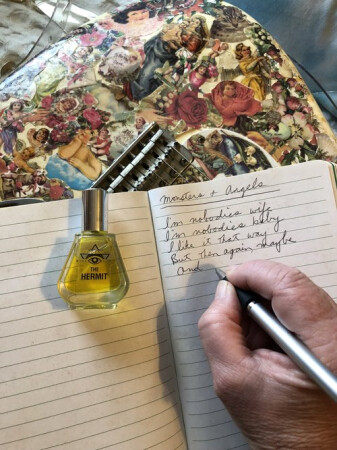 Monsters + Angels
I'm nobodies wife
I'm nobodies baby
I like it that way
But then again maybe
and
THE
HERMIT